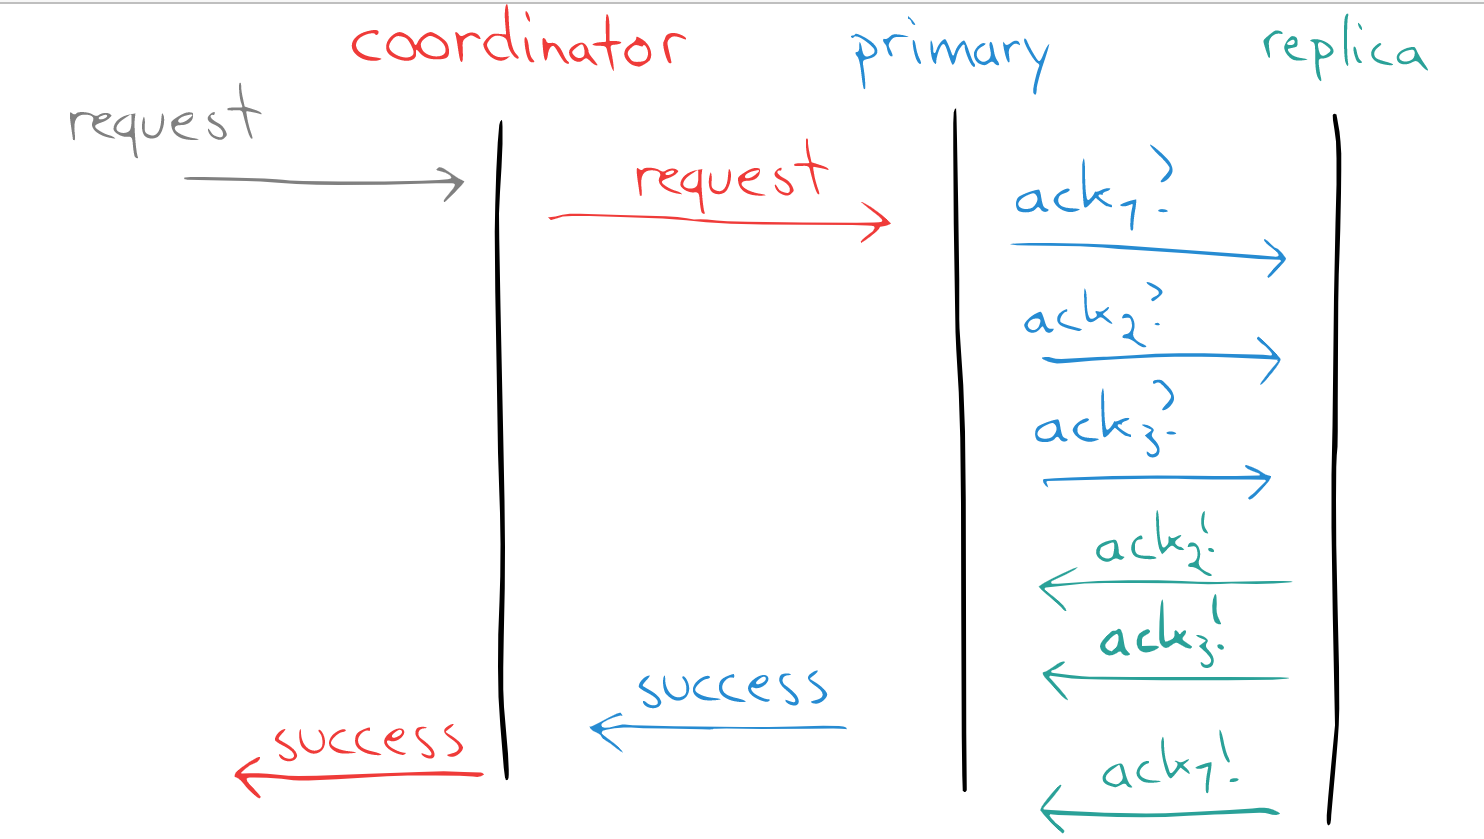 coordinator
primary
replica
request
request
ack1?
ack2?
ack3?
ack2!
ack3!
success
success
ack1!